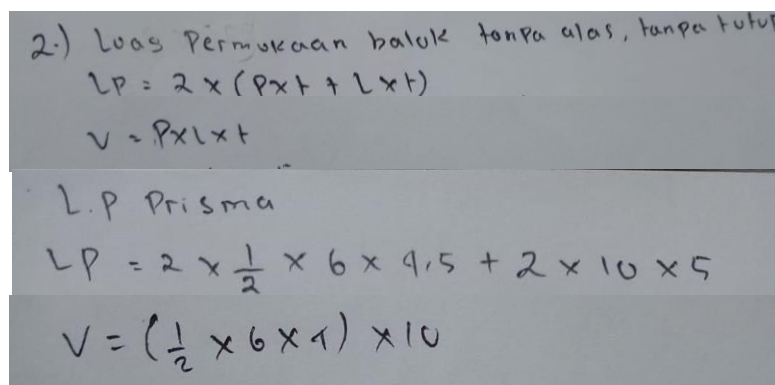 2.) Luas Permukaan balok tanpa alas, tanpa tutup
LP = 2 × (P×t + L×t)
V = P×L×t
L.P Prisma
LP = 2 × 1/2 × 6 × 4,5 + 2 × 10 × 5
V = (1/2 × 6 × 4) × 10